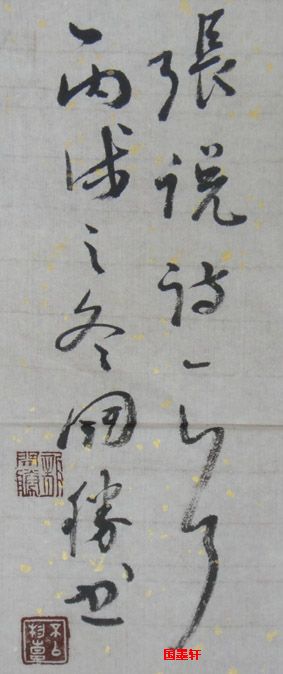 張説詩一首
丙戌之冬國勝书
国墨轩